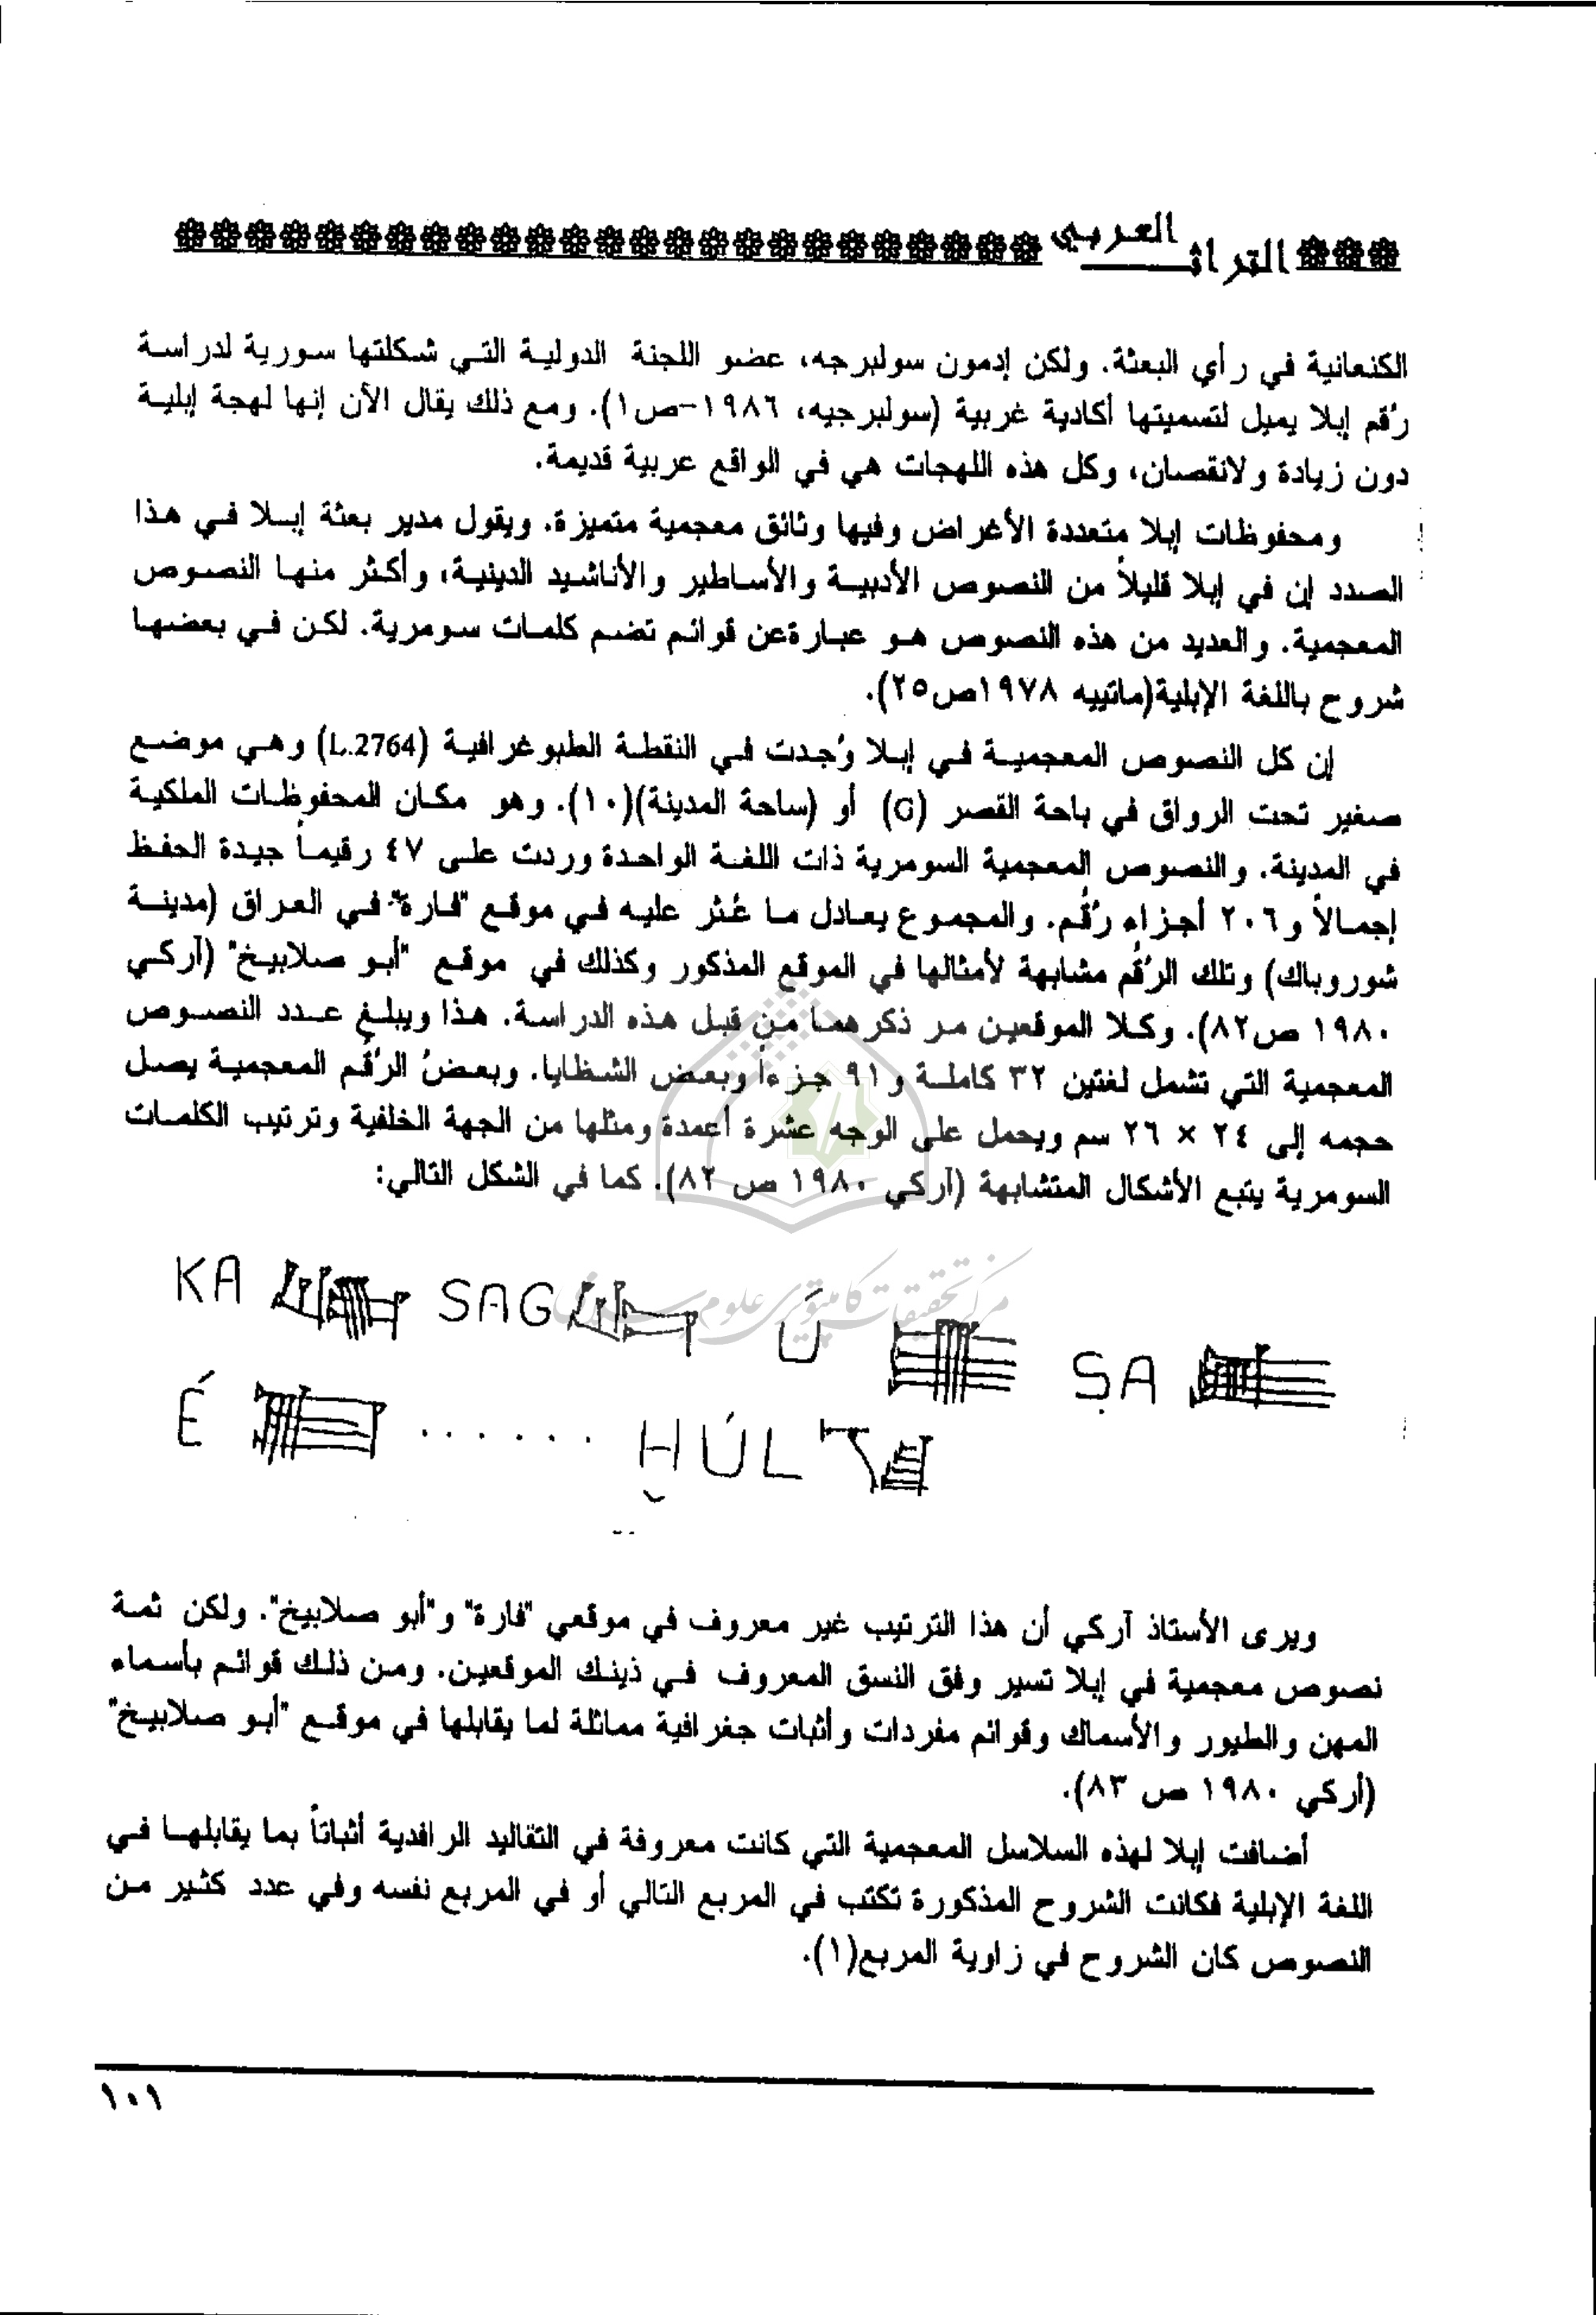 التراث العربي
الكنعانية في رأي البعثة. ولكن إدمون سولبرجه، عضو اللجنة الدولية التي شكلتها سورية لدراسة
رقم إبلا يميل لتسميتها أكادية غربية (سولبرجيه، ١٩٨٦-ص١). ومع ذلك يقال الآن إنها لهجة إبلية
دون زيادة ولانقصان، وكل هذه اللهجات هي في الواقع عربية قديمة.
ومحفوظات إبلا متعددة الأغراض وفيها وثائق معجمية متميزة. ويقول مدير بعثة إبلا في هذا
الصدد إن في إبلا قليلاً من النصوص الأدبية والأساطير والأناشيد الدينية، وأكثر منها النصوص
المعجمية. والعديد من هذه النصوص هو عبارةعن قوائم تضم كلمات سومرية. لكن في بعضها
شروح باللغة الإبلية(ماتييه ١٩٧٨ص٢٥).
إن كل النصوص المعجمية في إبلا وُجدت في النقطة الطبوغرافية (L.2764) وهي موضع
صغير تحت الرواق في باحة القصر (G) أو (ساحة المدينة)(١٠). وهو مكان المحفوظات الملكية
في المدينة. والنصوص المعجمية السومرية ذات اللغة الواحدة وردت على ٤٧ رقيماً جيدة الحفظ
إجمالاً و٢٠٦ أجزاء رُقُم. والمجموع يعادل ما عُثر عليه في موقع "فارة" في العراق (مدينة
شوروباك) وتلك الرُقُم مشابهة لأمثالها في الموقع المذكور وكذلك في موقع "أبو صلابيخ" (آركي
١٩٨٠ ص٨٢). وكلا الموقعين مر ذكرهما من قبل هذه الدراسة. هذا ويبلغ عدد النصوص
المعجمية التي تشمل لغتين ٣٢ كاملة و٩١ جزءاً وبعض الشظايا. وبعضُ الرُقُم المعجمية يصل
حجمه إلى ٢٤ × ٢٦ سم ويحمل على الوجه عشرة أعمدة ومثلها من الجهة الخلفية وترتيب الكلمات
السومرية يتبع الأشكال المتشابهة (آركي ١٩٨٠ ص ٨٢). كما في الشكل التالي:
KA SAG Ú ṢA
É ...... ḪÚL
مركز تحقيقات كامپيوتري علوم اسلامي
ويرى الأستاذ آركي أن هذا الترتيب غير معروف في موقعي "فارة" و"أبو صلابيخ". ولكن ثمة
نصوص معجمية في إبلا تسير وفق النسق المعروف في ذينك الموقعين. ومن ذلك قوائم بأسماء
المهن والطيور والأسماك وقوائم مفردات وأثبات جغرافية مماثلة لما يقابلها في موقع "أبو صلابيخ"
(أركي ١٩٨٠ ص ٨٣).
أضافت إبلا لهذه السلاسل المعجمية التي كانت معروفة في التقاليد الرافدية أثباتاً بما يقابلها في
اللغة الإبلية فكانت الشروح المذكورة تكتب في المربع التالي أو في المربع نفسه وفي عدد كثير من
النصوص كان الشروح في زاوية المربع(١).
١٠١